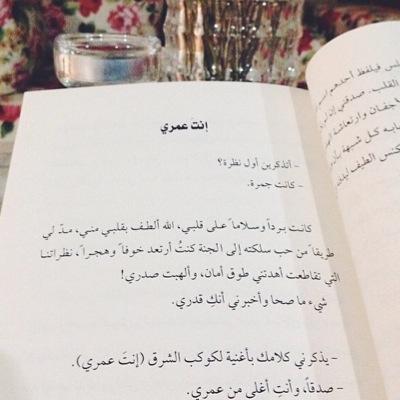 إنتَ عمري
- أتذكرين أول نظرة؟
- كانت جمرة.
كانت برداً وسلاماً على قلبي، الله ألطف بقلبي مني، مدّ لي
طريقاً من حب سلكته إلى الجنة كنتُ أرتعد خوفاً وهجراً، نظراتنا
التي تقاطعت أهدتني طوق أمان، وألهبت صدري!
شيء ما صحا وأخبرني أنكِ قدري.
- يذكرني كلامك بأغنية لكوكب الشرق (إنتَ عمري).
- صدقاً، وأنتِ أغلى من عمري.
فيلفظ أحدهم
القلب. صدقني إن
وارتعاشة
كل شبيهة
الطيف